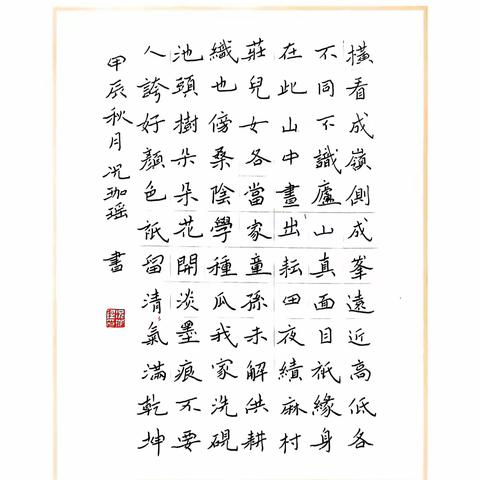 橫看成嶺側成峯遠近高低各
不同不識廬山真面目祇緣身
在此山中晝出耘田夜績麻村
莊兒女各當家童孫未解供耕
織也傍桑陰學種瓜我家洗硯
池頭樹朵朵花開淡墨痕不要
人誇好顏色祇留清氣滿乾坤
甲辰秋月况珈瑶書